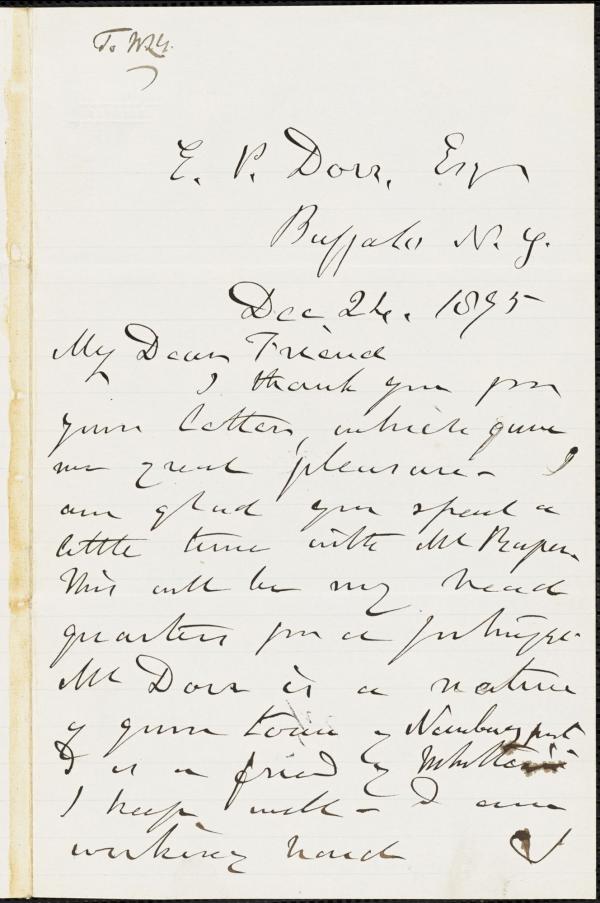 To W.L.G.
E. P. Dorr, Esq
Buffalo N. Y.
Dec 24. 1875
My Dear Friend
I thank you for
your letter, which gave
me great pleasure – I
am glad you spent a
little time with Mr
This will be my head
quarters for a
Mr Dorr is a native
of your town of Newburyport
& is a friend of
I keep well – I am
working hard